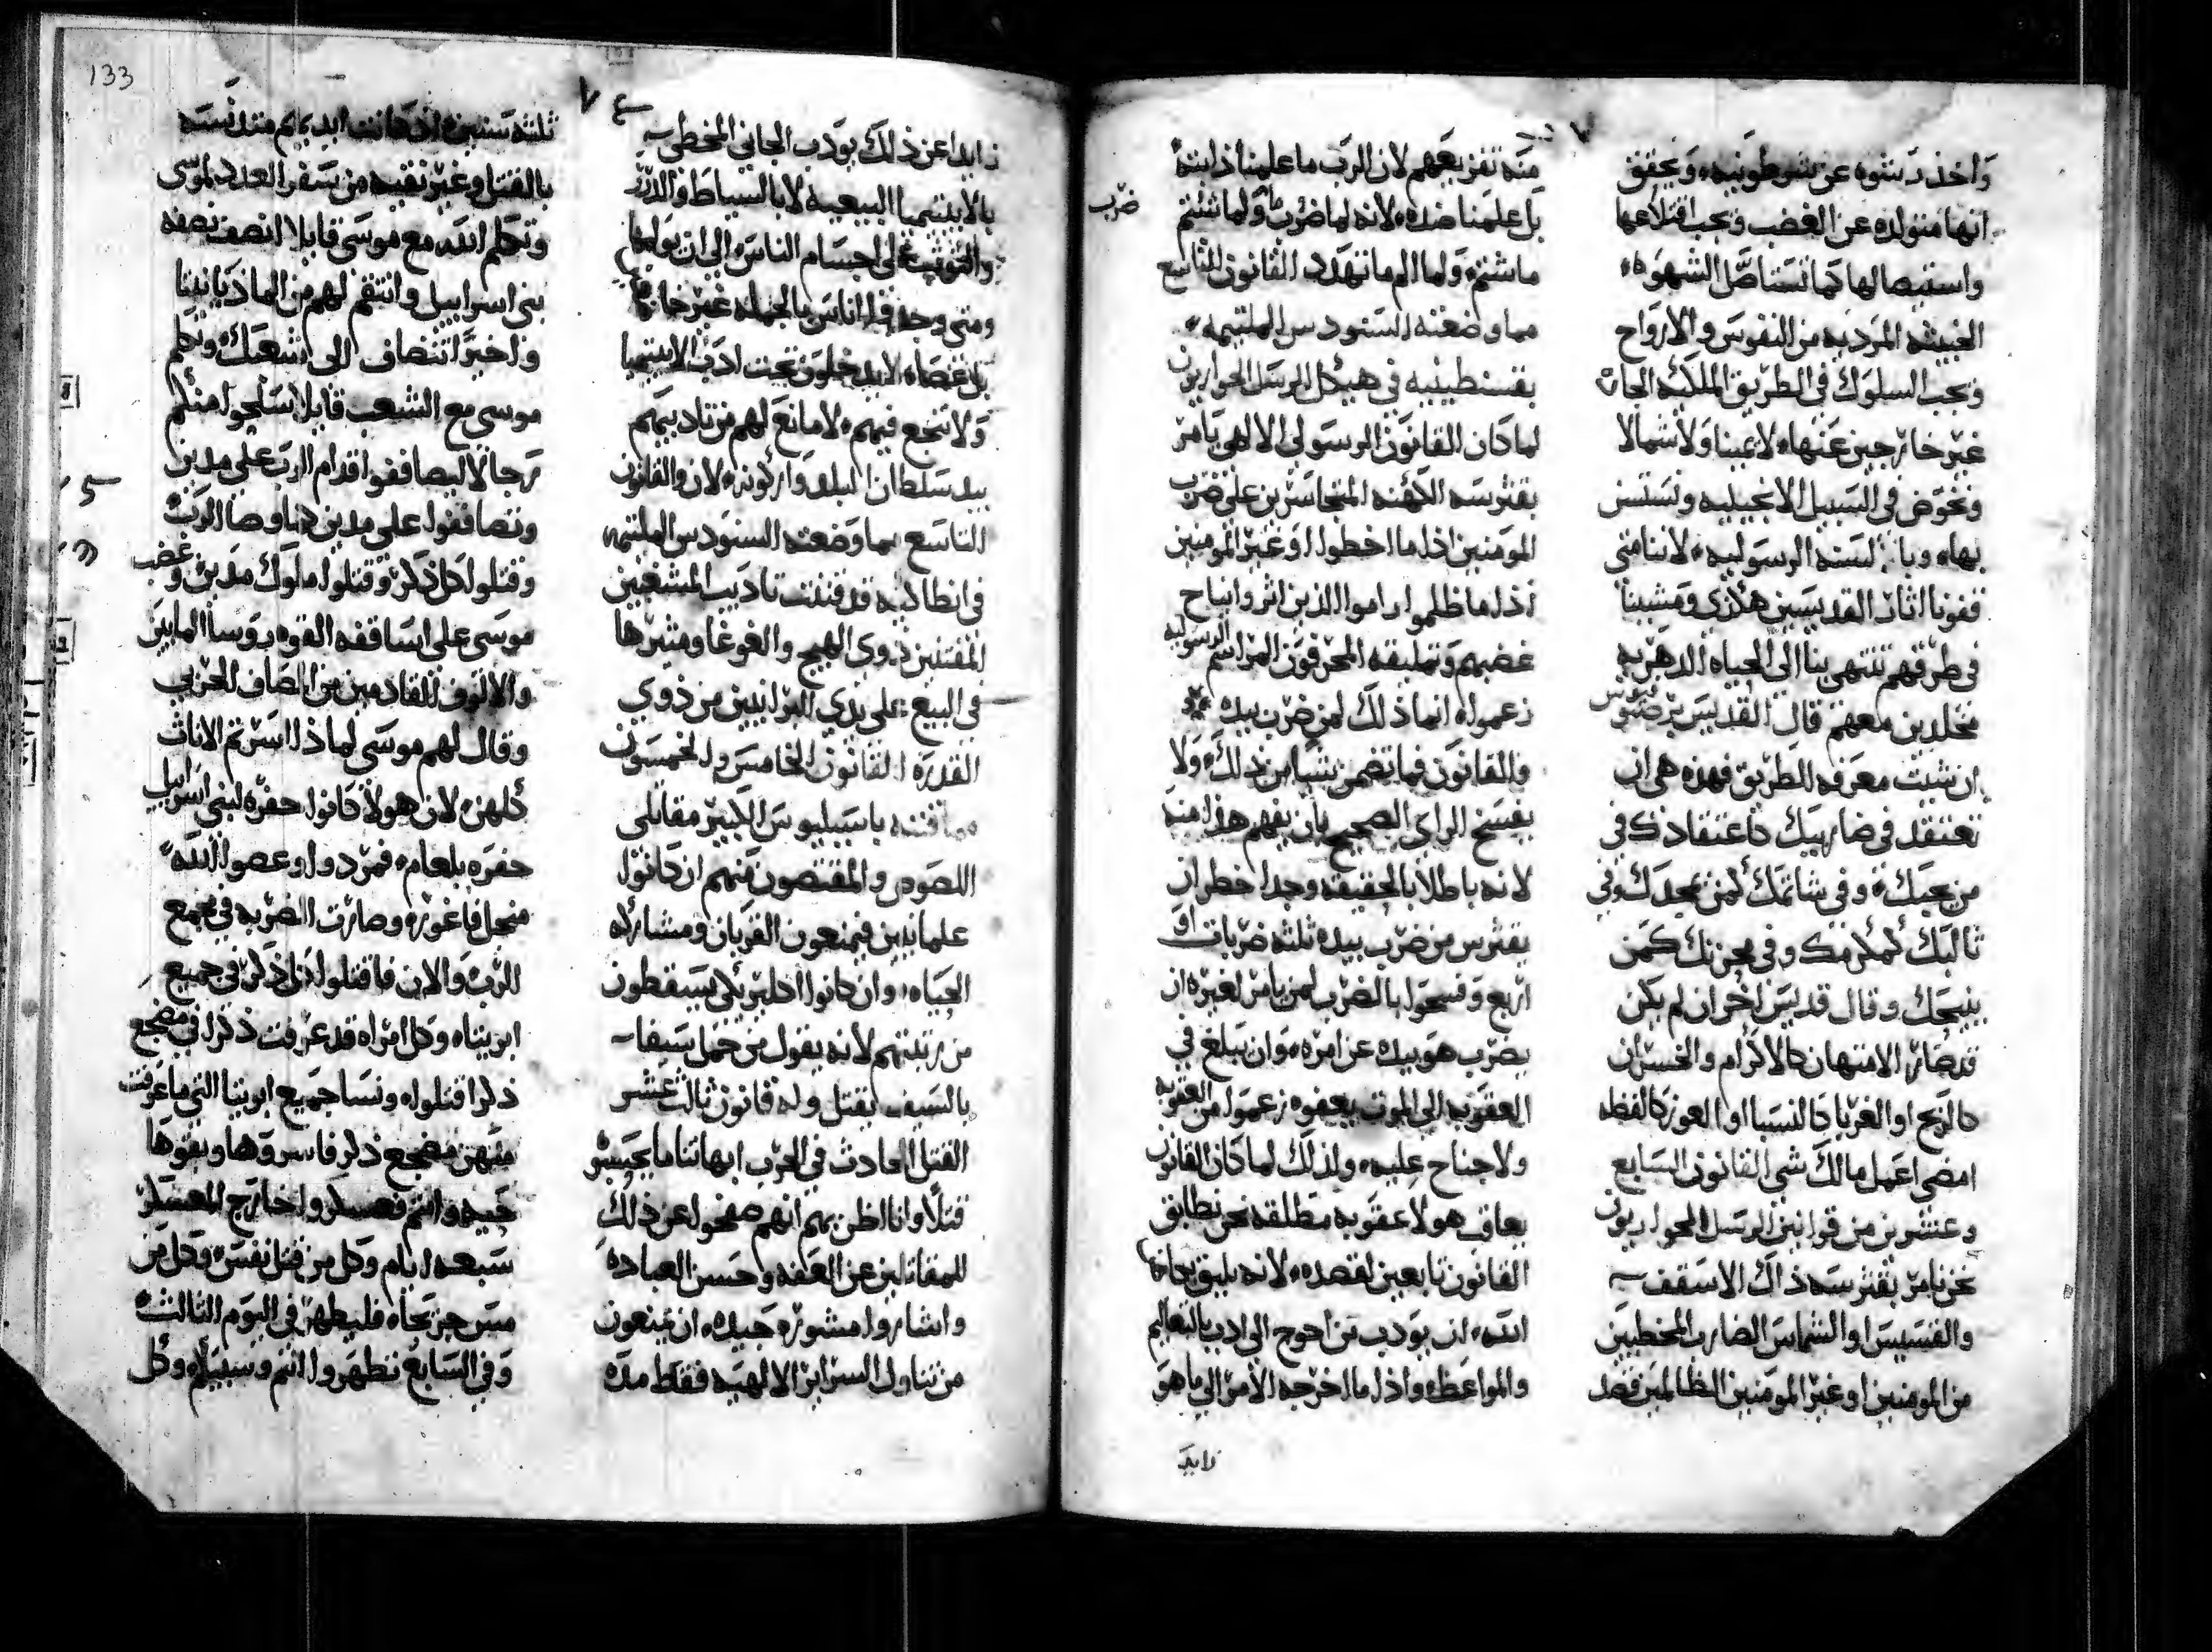 واخذ رشوه عن شرطونيه ونحقق
انها متولده عن الغضب ويجب اقتلاعها
واستيصالها كما تستاصل الشهوه
الخبيثه المرديه من النفوس والارواح
ويجب السلوك في الطريق الملكيه
غير خارجين عنها لا يمينا ولا شمالا
ونخوض في السبيل الانجيليه ونستسن
بها وبالسنه الرسوليه لاننا متى
قفونا اثار القديسين هكذى ومشينا
في طرقهم تنتهي بنا الى الحياه الدهريه
مخلدين معهم قال القديس
ان شيت معرفه الطريق فهذه هي ان
تعتقد في ضاربيك كاعتقادك في
من يحبك وفي شاتمك كمن يمجدك وفي
ثالبك كمكرمك وفي محزنك كمن
ينيحك وقال قديس اخر ان لم يكن
قد صار الامتهان كالاكرام والخسران
كالربح او الغربا كالنسبا او العوز كالفظه
امضي اعمل مالك شي القانون السابع
وعشرين من قوانين الرسل الحواريون
نحن نامر بقثرسه ذاك الاسقف
والقسيس او الشماس الضارب المخطيين
من المومنين او غير المومنين الظالمين قصد
منه تفزيعهم لان الرب ما علمنا ذا ابته
بل علمنا ضده لانه لما ضرب ما ولما شتم
ضرب
ما شتم ولما الم ما تهدد القانون التاسع
مما وضعته السنودس الملتيمه
بقسنطينيه في هيكل الرسل الحواريون
لما كان القانون الرسولي الالهي يامر
بقثرسه الكهنه المتجاسرين على ضرب
المومنين اذا ما اخطوا او غير المومنين
اذا ما ظلموا راموا الذين اثروا انباح
غضبهم وتمليقه المحرفون المراسم الرسوليه
زعموا انما ذلك لمن ضرب بيده
والقانون فما تضمن شيا من ذلك ولا
يفسح الراي الصحيح بان يفهم هذا منه
لانه باطلا بالحقيقه وجدا خطرا ان
يقثرس من ضرب بيده ثلثه ضربات او
اربع وفسحوا بالضرب لمن يامر لغيره ان
يضرب هو بيده عن امره وان يبلغ في
العقوبه الى الموت يعفوه زعموا من العقوبه
ولا جناح عليه ولذلك لما كان القانون
يعاقب هولا عقوبه مطلقه نحن نطابق
القانون تابعين لقصده لانه يليق بكاهن
الله ان يودب من احوج الى ادب بالتعاليم
والمواعظ واذا ما اخرجه الامر الى ما هو
زايد
زايدا عن ذلك يودب الجاني المخطي
بالابيتيميا البيعيه لا بالسياط والدك
والتوثب على اجسام الناس الى ان يولمها
ومتى وجد قد اناس بالجمله غير
بل عصاه لا يدخلون تحت ادب الابيتيميا
ولا تنجع فيهم لا مانع لهم من تاديبهم
بيد سلطان البلد واركونه لان والقانون
التاسع مما وضعته السنودس الملتيمه
في انطاكيه قد قننت تاديب المشغبين
المفتنين ذوي الهيج والغوغا ومثيرها
في البيع على يدي البرانيين من ذوي
القدره القانون الخامس والخمسون
مما قننه باسيليوس الكبير مقاتلي
اللصوص والمقتصون منهم ان كانوا
علمانيين فيمنعون القربان ومشاركه
الحياه وان كانوا اكليريكي يسقطون
من رتبتهم لانه يقول من حمل سيفا
بالسيف يقتل وله قانون ثالث عشر
القتل الحادث في الحرب ابهاتنا ما يحسبو
قتلا وانا الظن بهم انهم صفحوا عن ذلك
للمقاتلين عن العفه وحسن العباده
واشاروا مشوره جيده ان يمنعون
من تناول السراير الالهيه فقط مده
133
٧٤
ثلثه سنين اذ كانت ايديكم
بالقتل وغير نقيه من سفر العدد لموسى
وتكلم الله مع موسى قايلا انصف نصفه
بني اسراييل وانتقم لهم من الماذيانيتا
واخيرا تنضاف الى شعبك وتكلم
موسى مع الشعب قايلا سلحوا منكم
رجالا ليصاففوا قدام الرب على مدين
وتصاففوا على مدين كما وصا الرب
وقتلوا كل ذكر وقتلوا ملوك مدين وغضب
موسى على اساقفه القوه روسا المايين
والالوف القادمين من الصاف الحربي
وقال لهم موسى لماذا اسرتم الاناث
كلهن لان هولا كانوا حفره لبني اسراييل
حفره بلعام فمردوا وعصوا الله
منجل فاغوره وصارت الضربه في مجمع
الرب والان فاقتلوا كل ذكر في جميع
ابريتاه وكل امراه قد عرفت ذكرا في مضجع
ذكرا قتلوا ونسا جميع ابريتا التي ما عرفت
منهن مضجع ذكر فاسروها وبقوها
حيه وانتم فعسكروا خارج المعسكر
سبعه ايام وكل من قتل نفس وكل من
مس جريحاه فليطهر في اليوم الثالث
وفي السابع تطهروا انتم وسبيكم وكل